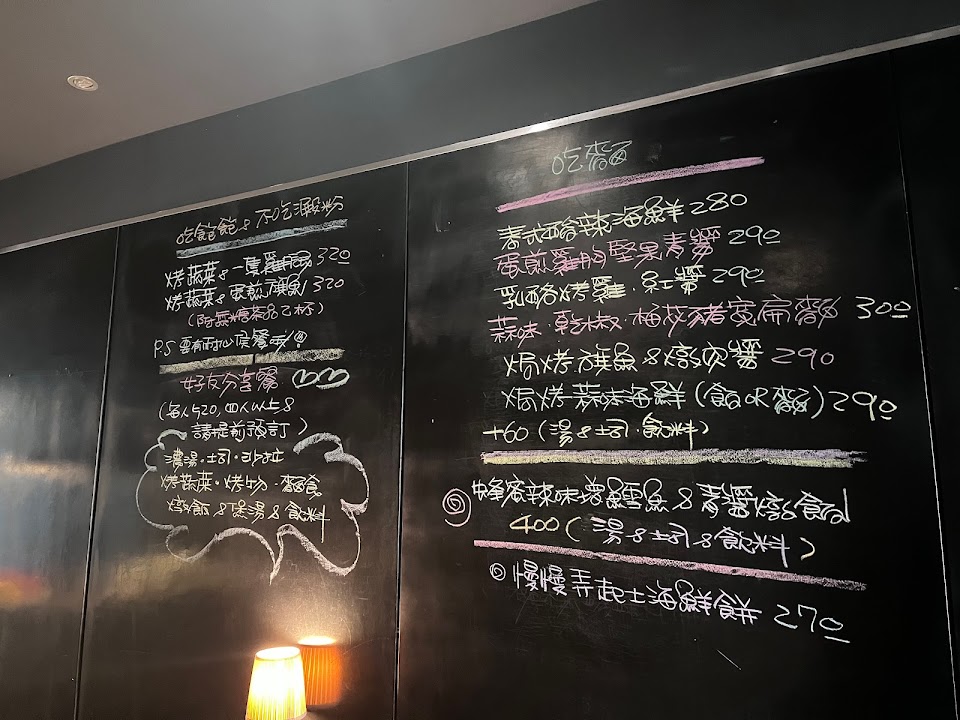 吃飽飽&不吃澱粉
烤蔬菜&一隻雞腿 320
烤蔬菜&蛋煎旗魚 320
(附無糖茶品乙杯)
P.S 要有耐心候餐哦!
好友分享餐
(每人520,四人以上&
請提前預訂)
濃湯·土司·沙拉
烤蔬菜·烤物·麵食
燉飯&煲湯&飲料
吃麵
泰式酸辣海鮮 280
蛋煎雞胸堅果青醬 290
乳酪烤雞·紅醬 290
蒜味·乾椒·梅花豬寬扁麵 300
焗烤旗魚&燉肉醬 290
焗烤蒜味海鮮(飯OR麵) 290
+60(湯&土司·飲料)
◎蜂蜜辣味增鱈魚&青醬燉飯
400(湯&土司&飲料)
◎慢慢弄起士海鮮餅 270